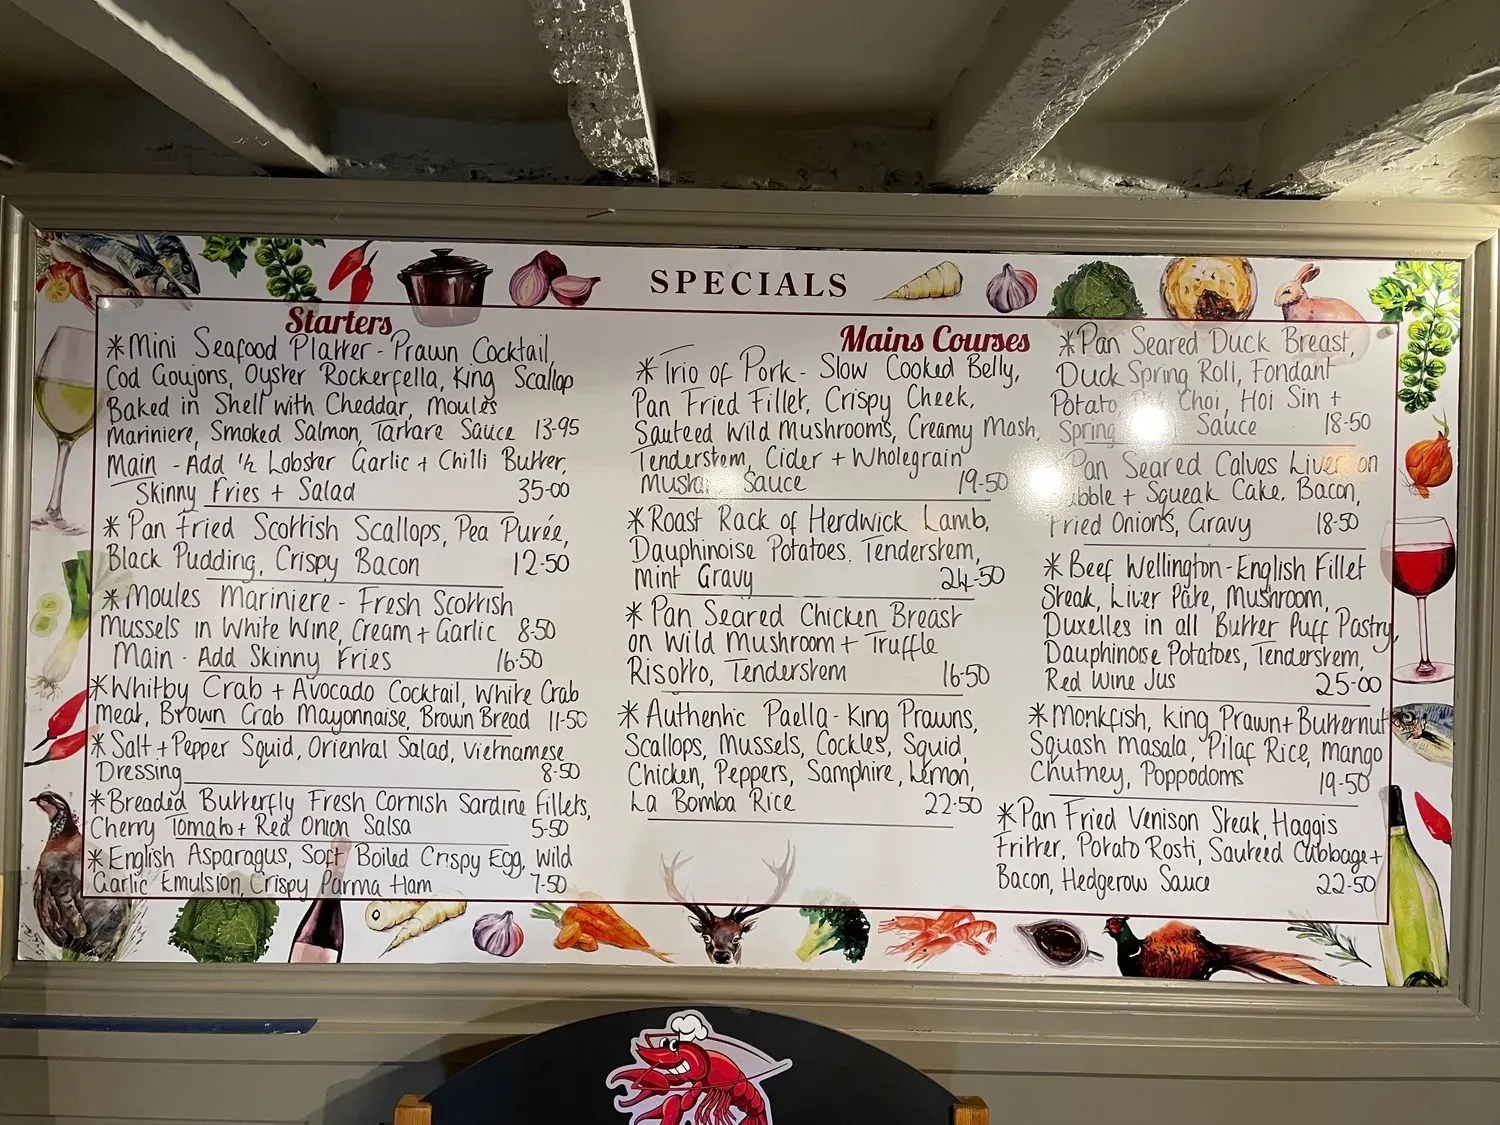 SPECIALS
Starters
*Mini Seafood Platter - Prawn Cocktail,
Cod Goujons, Oyster Rockerfella, King Scallop
Baked in Shell with Cheddar, Moules
Mariniere, Smoked Salmon, Tartare Sauce 13-95
Main - Add 1/2 Lobster Garlic + Chilli Butter,
Skinny Fries + Salad 35-00
* Pan Fried Scottish Scallops, Pea Purée,
Black Pudding, Crispy Bacon 12-50
*Moules Mariniere - Fresh Scottish
Mussels in White Wine, Cream + Garlic 8-50
Main - Add Skinny Fries 16-50
*Whitby Crab + Avocado Cocktail, White Crab
Meat, Brown Crab Mayonnaise, Brown Bread 11-50
*Salt + Pepper Squid, Oriental Salad, Vietnamese
Dressing 8-50
*Breaded Butterfly Fresh Cornish Sardine Fillets,
Cherry Tomato + Red Onion Salsa 5-50
*English Asparagus, Soft Boiled Crispy Egg, Wild
Garlic Emulsion, Crispy Parma Ham 7-50
Mains Courses
*Trio of Pork - Slow Cooked Belly,
Pan Fried Fillet, Crispy Cheek,
Sauteed Wild Mushrooms, Creamy Mash,
Tenderstem, Cider + Wholegrain
Sauce 19-50
*Roast Rack of Herdwick Lamb,
Dauphinoise Potatoes. Tenderstem,
Mint Gravy 24-50
* Pan Seared Chicken Breast
on Wild Mushroom + Truffle
Risotto, Tenderstem 16-50
*Authentic Paella - King Prawns,
Scallops, Mussels, Cockles, Squid,
Chicken, Peppers, Samphire, Lemon,
La Bomba Rice 22-50
*Pan Seared Duck Breast,
Duck Spring Roll, Fondant
Potato, Choi, Hoi Sin +
Spring Sauce 18-50
Pan Seared Calves Liver on
Bubble + Squeak Cake. Bacon,
Fried Onions, Gravy 18-50
*Beef Wellington - English Fillet
Steak, Liver Pate, Mushroom,
Duxelles in all Butter Puff Pastry,
Dauphinoise Potatoes, Tenderstem,
Red Wine Jus 25-00
*Monkfish, King Prawn + Butternut
Squash Masala, Pilaf Rice, Mango
Chutney, Poppodoms 19-50
*Pan Fried Venison Steak, Haggis
Fritter, Potato Rosti, Sauteed Cabbage +
Bacon, Hedgerow Sauce 22-50